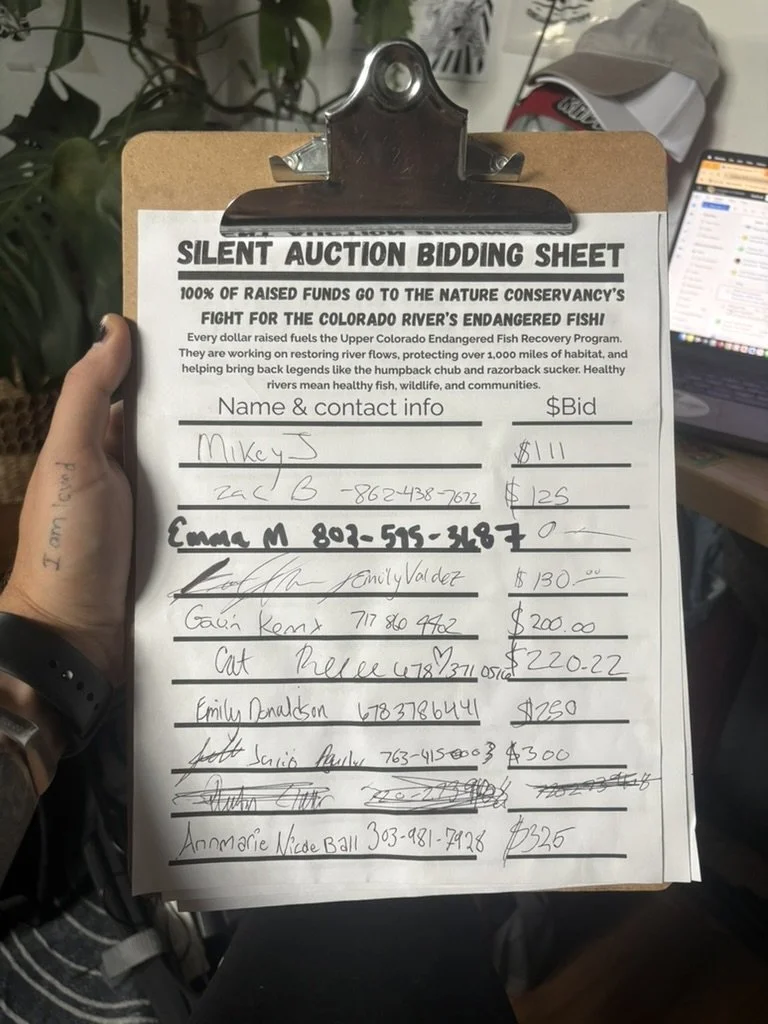 SILENT AUCTION BIDDING SHEET
100% OF RAISED FUNDS GO TO THE NATURE CONSERVANCY'S
FIGHT FOR THE COLORADO RIVER'S ENDANGERED FISH!
Every dollar raised fuels the Upper Colorado Endangered Fish Recovery Program.
They are working on restoring river flows, protecting over 1,000 miles of habitat, and
helping bring back legends like the humpback chub and razorback sucker. Healthy
rivers mean healthy fish, wildlife, and communities.
Name & contact info $Bid
Mikey J $111
Zac B -862-438-7672 $125
Emma M 802-595-3687 0
Emily Valdez $130.00
Gavin 717 860 4402 $200.00
Cat 678 371 0516 $220.22
Emily Donaldson 6783786441 $250
763-415-0003 $300
Annmarie Nicole Ball 303-981-7928 $325
I am loved